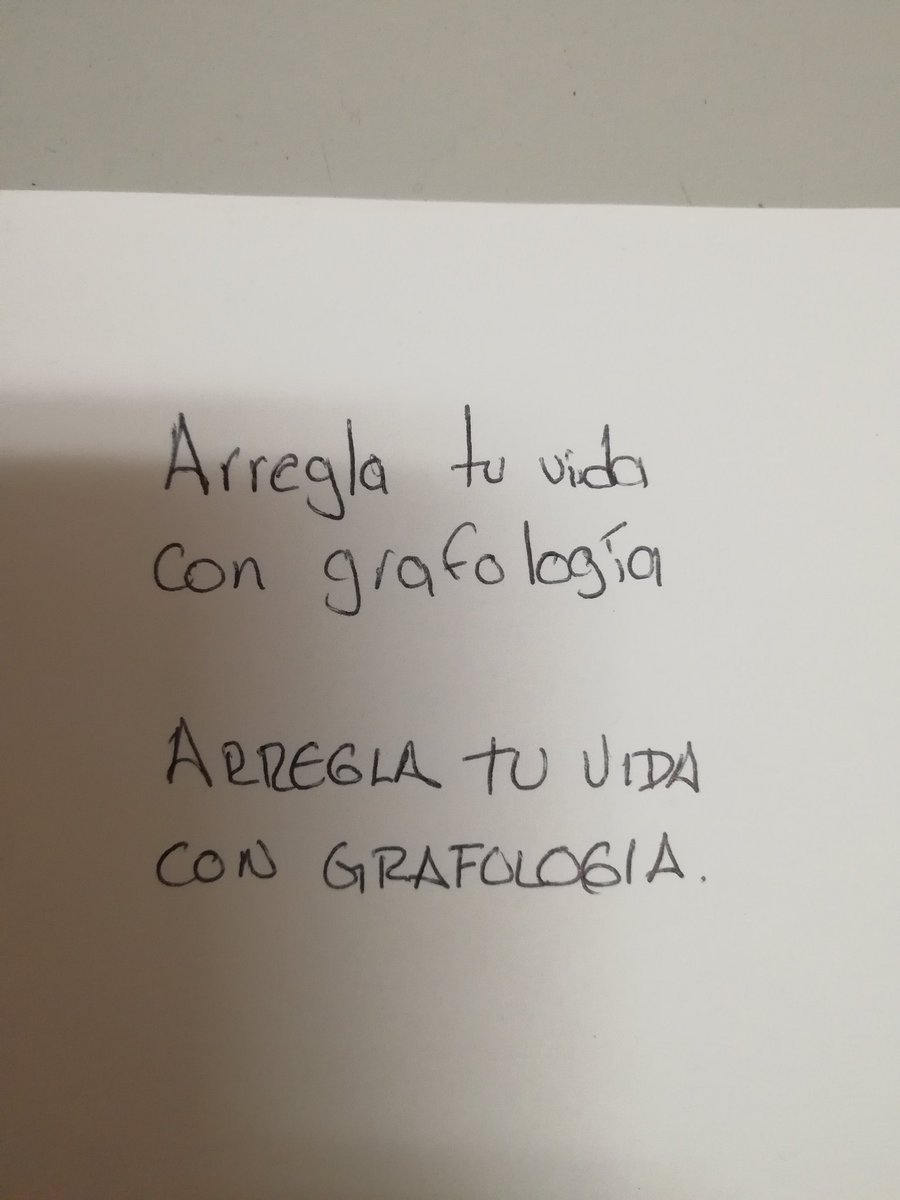 Arregla tu vida
con grafología
ARREGLA TU VIDA
CON GRAFOLOGIA.